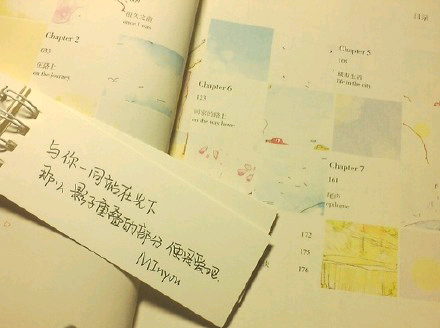 很久之前
since I was
Chapter 2
在路上
on the journey
目录
Chapter 5
life in the city
Chapter 6
回家的路上
on the way home
Chapter 7
161
尾声
epilogue
172
175
176
与你一同站在光下
那么影子重叠的部分 便是爱吧.
Minyou